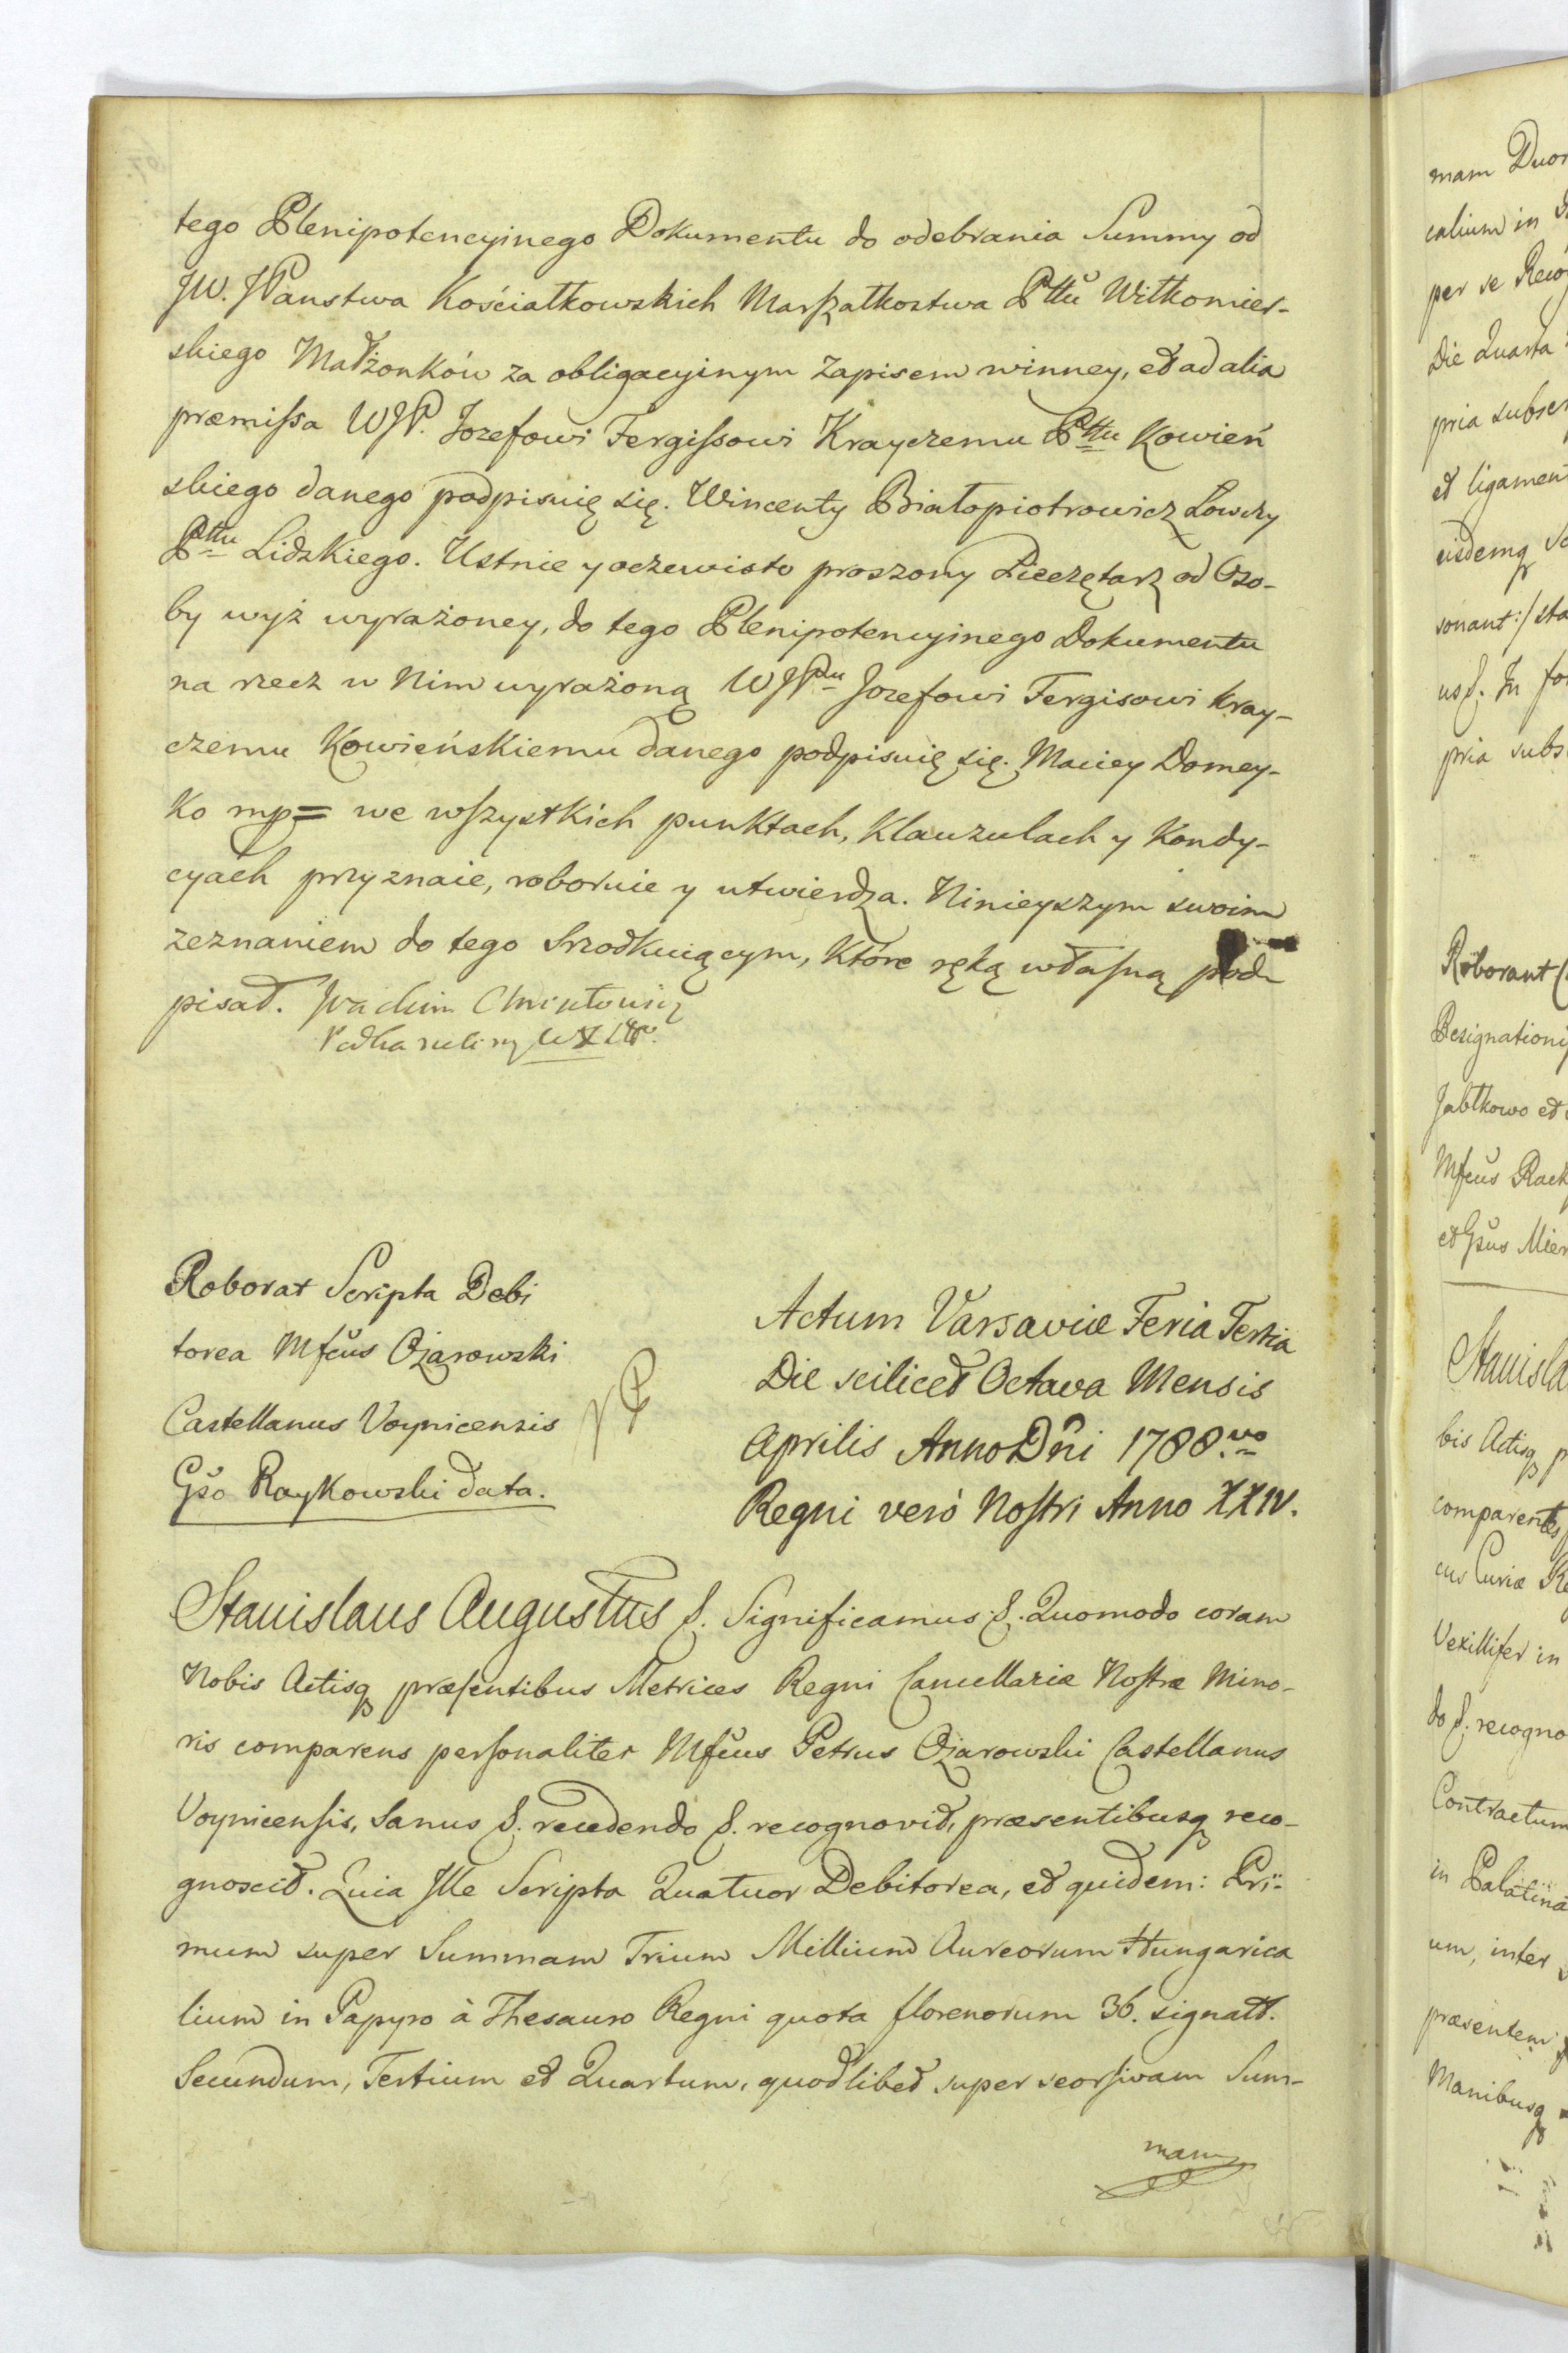 tego Plenipotencyinego Dokumentu do odebrania Summy od
JW. JPanstwa Kościałkowskich Marszałkostwa Pttu Wiłkomier-
skiego Małżonków za obligacyinym Zapisem winney, et ad alia
præmissa WJP. Jozefowi Fergissowi Krayczemu Pttu Kowień
skiego danego podpisuię się. Wincenty Białopiotrowicz Łowczy
Pttu Lidzkiego. Ustnie y oczewisto proszony Pieczętarz od Oso-
by wyż wyrażoney, do tego Plenipotencyinego Dokumentu
na rzecz w Nim wyrażoną WJPanu Jozefowi Fergisowi Kray-
czemu Kowieńskiemu danego podpisuię się. Maciey Domey-
ko mp= we wszystkich punktach, Klauzulach y Kondy-
cyach przyznaie, roboruie y utwierdza. Ninieyszym swoim
zeznaniem do tego Srzodkuiącym, Które ręką własną pod-
pisał.
Roborat Scripta Debi
torea Mfcus Ożarowski
Castellanus Voynicensis
Gso Raykowski data.
Actum Varsaviæ Feria Tertia
Die scilicet Octava Mensis
Aprilis Anno Dni 1788.vo
Regni verò Nostri Anno XXIV.
Stanislaus Augustus &. Significamus &. Quomodo coram
Nobis Actisq præsentibus Metrices Regni Cancellariæ Nostræ Mino-
ris comparens personaliter Mfcus Petrus Ożarowski Castellanus
Voynicensis, Sanus &. recedendo &. recognovit, præsentibusq reco-
gnoscit. Quia Ille Scripta Quatuor Debitorea, et quidem: Pri-
mum super Summam Trium Millium Aureorum Hungarica
lium in Papyro à Thesauro Regni quota florenorum 36. signatt.
Secundum, Tertium et Quartum, quodlibet super seorsivam Sum-
mam
mam
calium in
per se
Die Quarta
pria
et
sonant:/
In
pria
Roborant
Designationi
Jabłkowo et
Mfcus
et Gsus
bis Actisq
comparentes
Curiæ
Vexillifer in
do &. recogno
Contractum
in
um, inter
præsentem
Manibusq